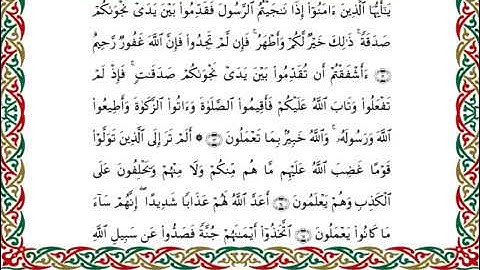 يَـٰٓأَيُّهَا ٱلَّذِينَ ءَامَنُوٓا۟ إِذَا نَـٰجَيْتُمُ ٱلرَّسُولَ فَقَدِّمُوا۟ بَيْنَ يَدَىْ نَجْوَىٰكُمْ
صَدَقَةً ۚ ذَٰلِكَ خَيْرٌ لَّكُمْ وَأَطْهَرُ ۚ فَإِن لَّمْ تَجِدُوا۟ فَإِنَّ ٱللَّهَ غَفُورٌ رَّحِيمٌ
ءَأَشْفَقْتُمْ أَن تُقَدِّمُوا۟ بَيْنَ يَدَىْ نَجْوَىٰكُمْ صَدَقَـٰتٍ ۚ فَإِذْ لَمْ
تَفْعَلُوا۟ وَتَابَ ٱللَّهُ عَلَيْكُمْ فَأَقِيمُوا۟ ٱلصَّلَوٰةَ وَءَاتُوا۟ ٱلزَّكَوٰةَ وَأَطِيعُوا۟
ٱللَّهَ وَرَسُولَهُۥ ۚ وَٱللَّهُ خَبِيرٌۢ بِمَا تَعْمَلُونَ ۞ أَلَمْ تَرَ إِلَى ٱلَّذِينَ تَوَلَّوْا۟
قَوْمًا غَضِبَ ٱللَّهُ عَلَيْهِم مَّا هُم مِّنكُمْ وَلَا مِنْهُمْ وَيَحْلِفُونَ عَلَى
ٱلْكَذِبِ وَهُمْ يَعْلَمُونَ أَعَدَّ ٱللَّهُ لَهُمْ عَذَابًا شَدِيدًا ۖ إِنَّهُمْ سَآءَ
مَا كَانُوا۟ يَعْمَلُونَ ٱتَّخَذُوٓا۟ أَيْمَـٰنَهُمْ جُنَّةً فَصَدُّوا۟ عَن سَبِيلِ ٱللَّهِ